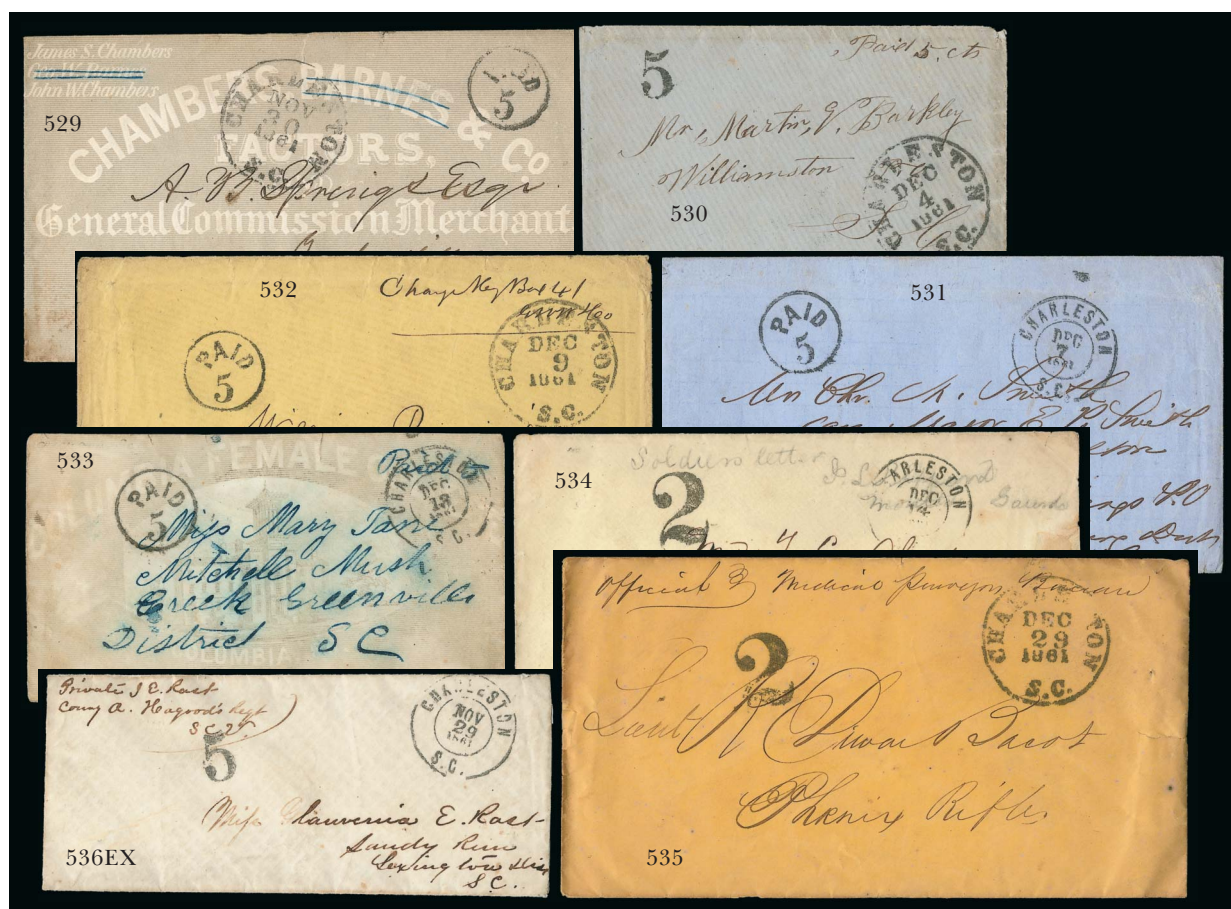 James S. Chambers
Geo W. Barnes
John W. Chambers
CHAMBERS, BARNES & Co
FACTORS,
General Commission Merchant
529
CHARLESTON
NOV
30
1861
S.C.
PAID
5
A. B. Springs Esqr
5
Paid 5 cts
Mr. Martin V. Barkley
Williamston
S. C.
530
CHARLESTON
DEC
4
1861
S.C.
532
Charge My Box 41
PAID
5
CHARLESTON
DEC
9
1861
S.C.
Miss
531
PAID
5
CHARLESTON
DEC
7
1861
S.C.
Mr Chr. M. Smith
care Major E. P. Smith
533
FEMALE
COLUMBIA
Paid 5
PAID
5
CHARLESTON
DEC
13
1861
S.C.
Miss Mary Jane
Mitchell Mush
Creek Greenville
District S C
534
Soldiers letter
2
CHARLESTON
DEC
Official B Medical Purveyors Bureau
2
CHARLESTON
DEC
29
1861
S.C.
Lieut R Dewar Bacot
Phenix Rifles
535
Private J E. Rast
Comy A. Hagood's Regt
S C V.
5
CHARLESTON
NOV
29
1861
S.C.
Miss Lauvenia E. Rast
Sandy Run
Lexington Dis
S C.
536EX